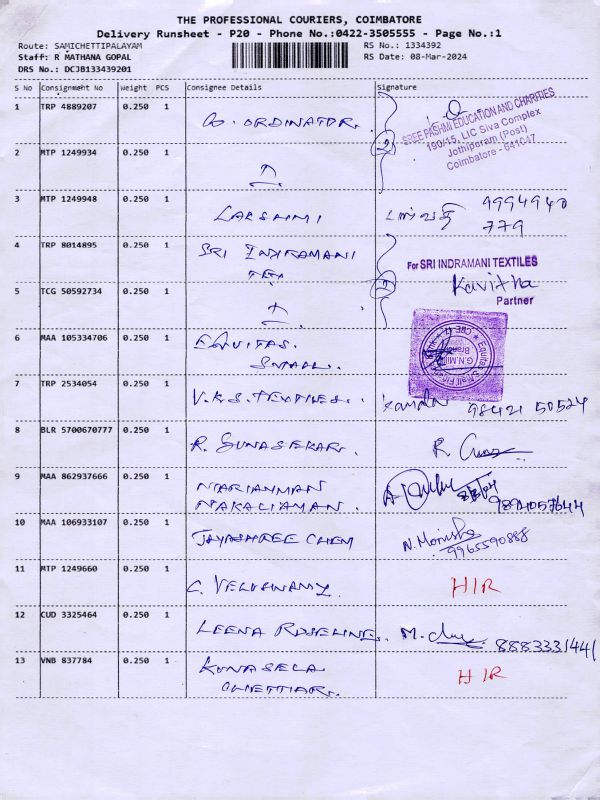 THE PROFESSIONAL COURIERS, COIMBATORE
Delivery Runsheet - P20 - Phone No.:0422-3505555 - Page No.:1
Route: SAMICHETTIPALAYAM RS No.: 1334392
Staff: R MATHANA GOPAL RS Date: 08-Mar-2024
DRS No.: DCJB133439201
S No Consignment No Weight PCS Consignee Details Signature
1 TRP 4889207 0.250 1 CO. ORDINATOR.
SREE PASHMI EDUCATION AND CHARITIES
190/15, LIC Siva Complex
Jothipuram (Post)
Coimbatore - 641047
2 MTP 1249934 0.250 1 2
3 MTP 1249948 0.250 1 LAKSHMI 9994940
779
4 TRP 8014895 0.250 1 SRI INDRAMANI
TEX
For SRI INDRAMANI TEXTILES
5 TCG 50592734 0.250 1 2 Kavitha
Partner
6 MAA 105334706 0.250 1 EQUITAS.
SMALL.
G.N.Mills
Branch
7 TRP 2534054 0.250 1 V.K.S. TEXTILES. 98421 50524
8 BLR 5700670777 0.250 1 R. GUNASEKAR. R.
9 MAA 862937666 0.250 1 MARIAMMAN
NAKALIAMMAN. 9894057644
10 MAA 106933107 0.250 1 JAYASHREE CHEM N. Monisha
9965590888
11 MTP 1249660 0.250 1 C. VELUSWAMY. HIR
12 CUD 3325464 0.250 1 LEENA ROSELINE. M. 8883331441
13 VNB 837784 0.250 1 KUNASELA
CHETTIAR. HIR